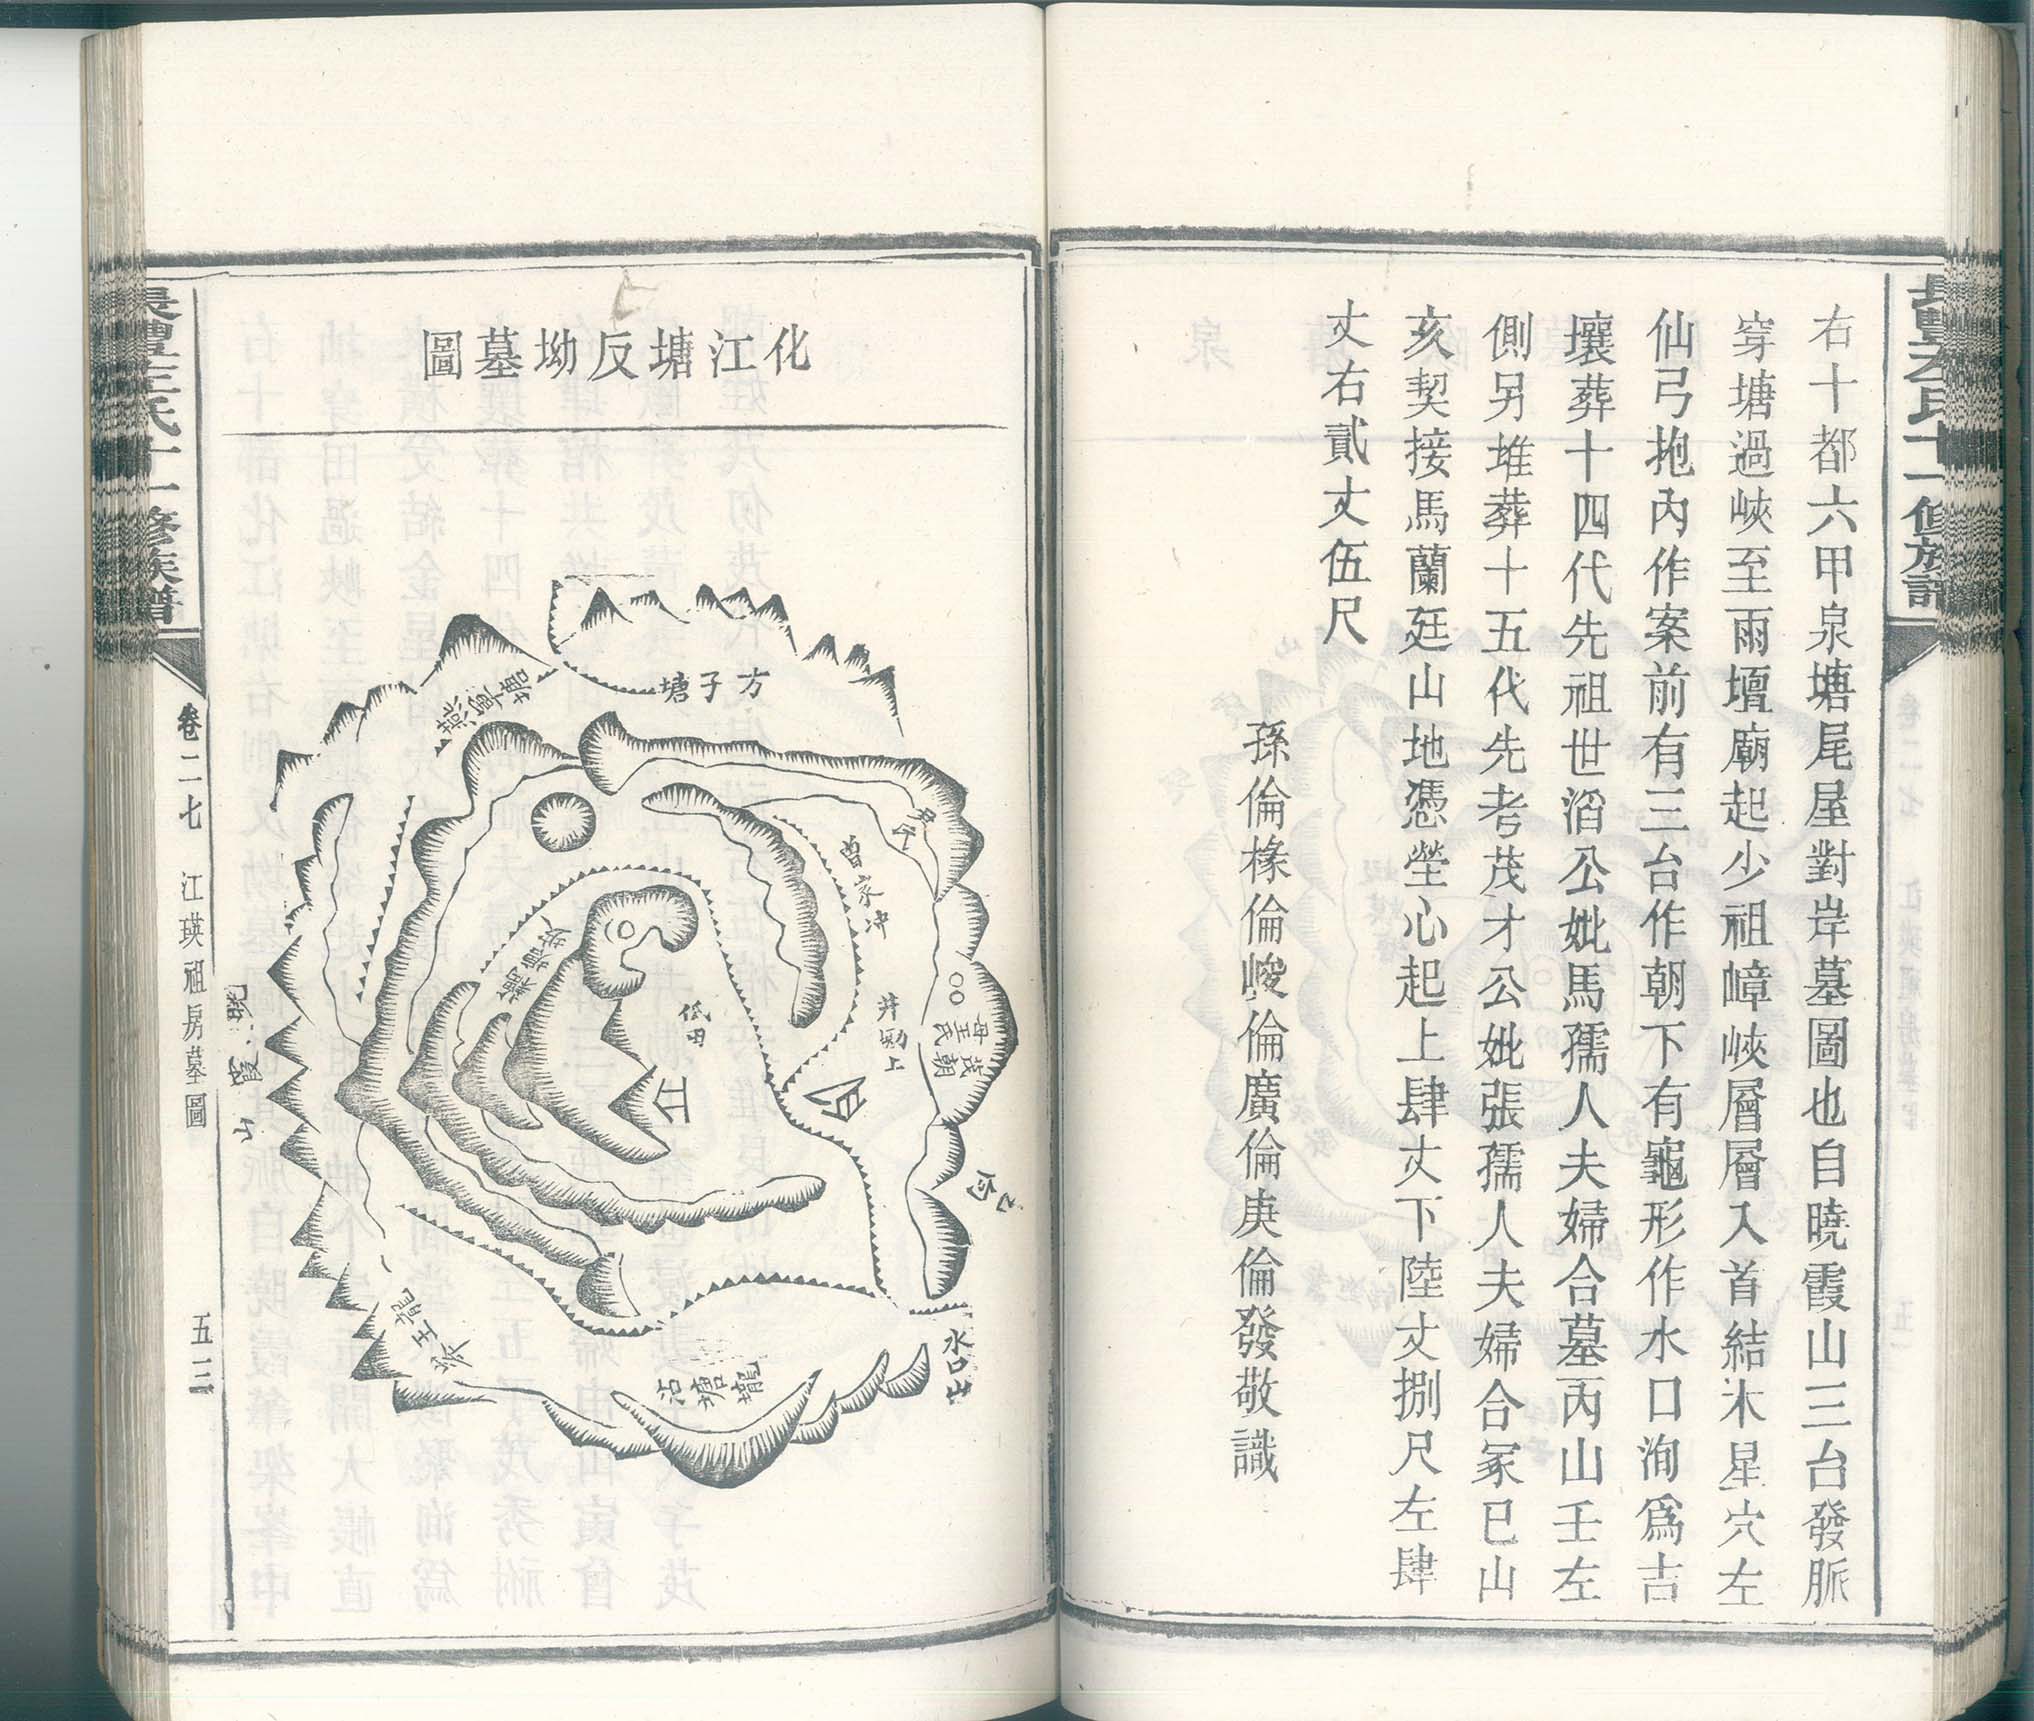 右十都六甲泉塘尾屋對岸墓圖也自曉霞山三台發脈
穿塘過峽至雨壇廟起少祖嶂峽層層入首結木星穴左
仙弓抱內作案前有三台作朝下有龜形作水口洵爲吉
壤葬十四代先祖世滔公妣馬孺人夫婦合墓丙山壬左
側另堆葬十五代先考茂才公妣張孺人夫婦合冢巳山
亥契接馬蘭廷山地憑塋心起上肆丈下陸丈捌尺左肆
丈右貳丈伍尺
孫倫椽倫峻倫廣倫庚倫發敬識
化江塘反坳墓圖
方子塘
曾家冲
井坳上
低田
茂朝
母王氏
水口山
龍王
沾塘壠
曉霞山
卷二七
江瑛祖房墓圖
五二